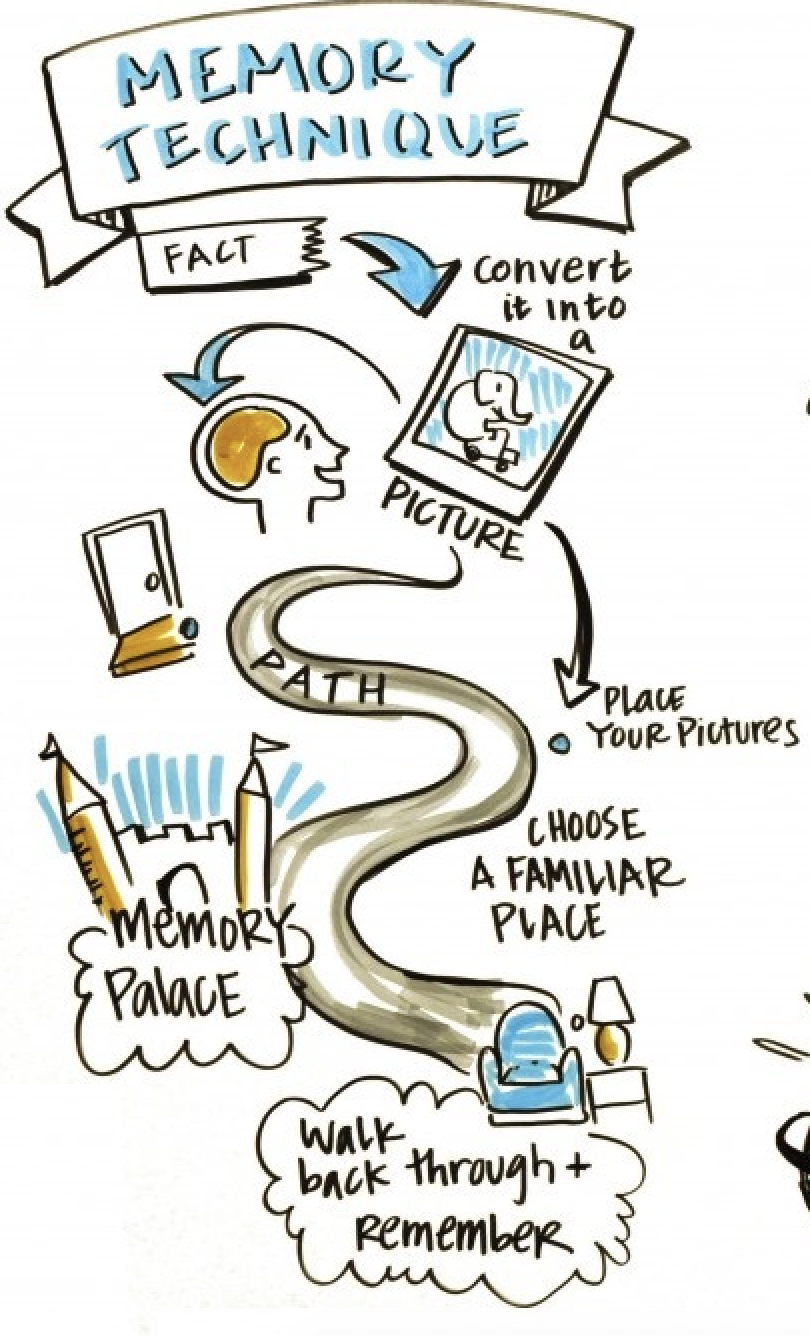 MEMORY
TECHNIQUE
FACT
convert
it into
a
PICTURE
PATH
PLACE
YOUR PictuRES
CHOOSE
A FAMILIAR
PLACE
MemoRY
PalacE
Walk
back through +
Remember